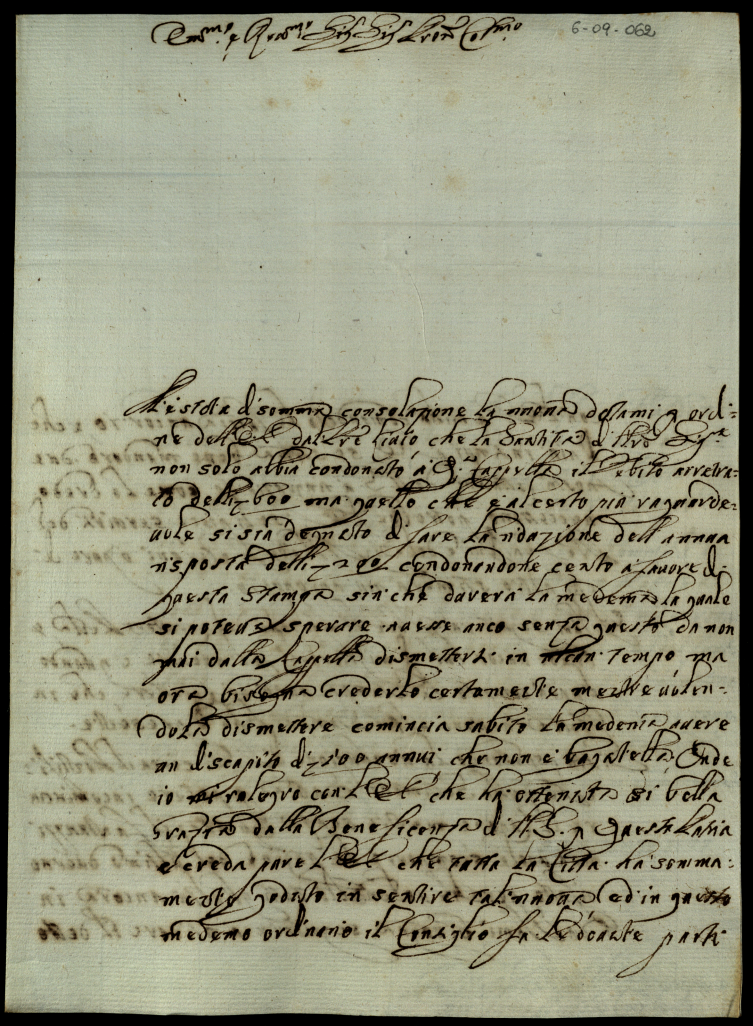 Em.mo e Rev.mo Sig. Sig. Pron. Col.mo
6-09-062
È stata di somma consolazione la nuova datami p ordi=
ne dell' E V dal che la Santità di Nro Sig.re
non solo abbia condonato a q.a Cappella il debito arretra=
to delli 600 ma quello che è al certo più raguarde=
uole si sia degnato di fare la riduzione dell annua
risposta delli 200 condonandone cento a fauore di
questa Stampa sin che durerà la medema la quale
si poteua sperare auesse anco senza questo da non
mai dalla Cappella dismettersi in tempo ma
ora bisogna crederlo certamente mentre uolen=
dola dismettere comincia subito la medema auere
un discapito di 100 annui che non è bagatella Onde
io mi ralegro con l' E V che ha ottenuta si bella
Grazia dalla Beneficenza di N S. p questa
e creda pure l' E V che tutta la Città ha somma=
mente goduto in sentire tal nuoua ed in questo
medemo ordinario il Consiglio fa le douute parti